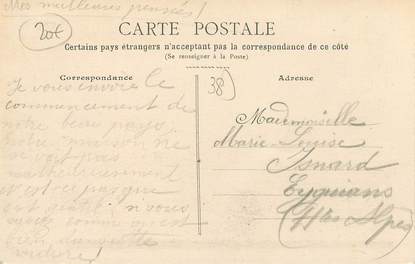 Mes meilleures pensées !
20€
CARTE POSTALE
Certains pays étrangers n'acceptant pas la correspondance de ce côté
(Se renseigner à la Poste)
Correspondance
Adresse
38
Je vous envoie le
commencement de
notre beau pays
notre maison ne
s'y voit pas
malheureusement
si vous
bien
voiture !
Mademoiselle
Marie-Louise
Isnard
Eyguians
(Htes Alpes)